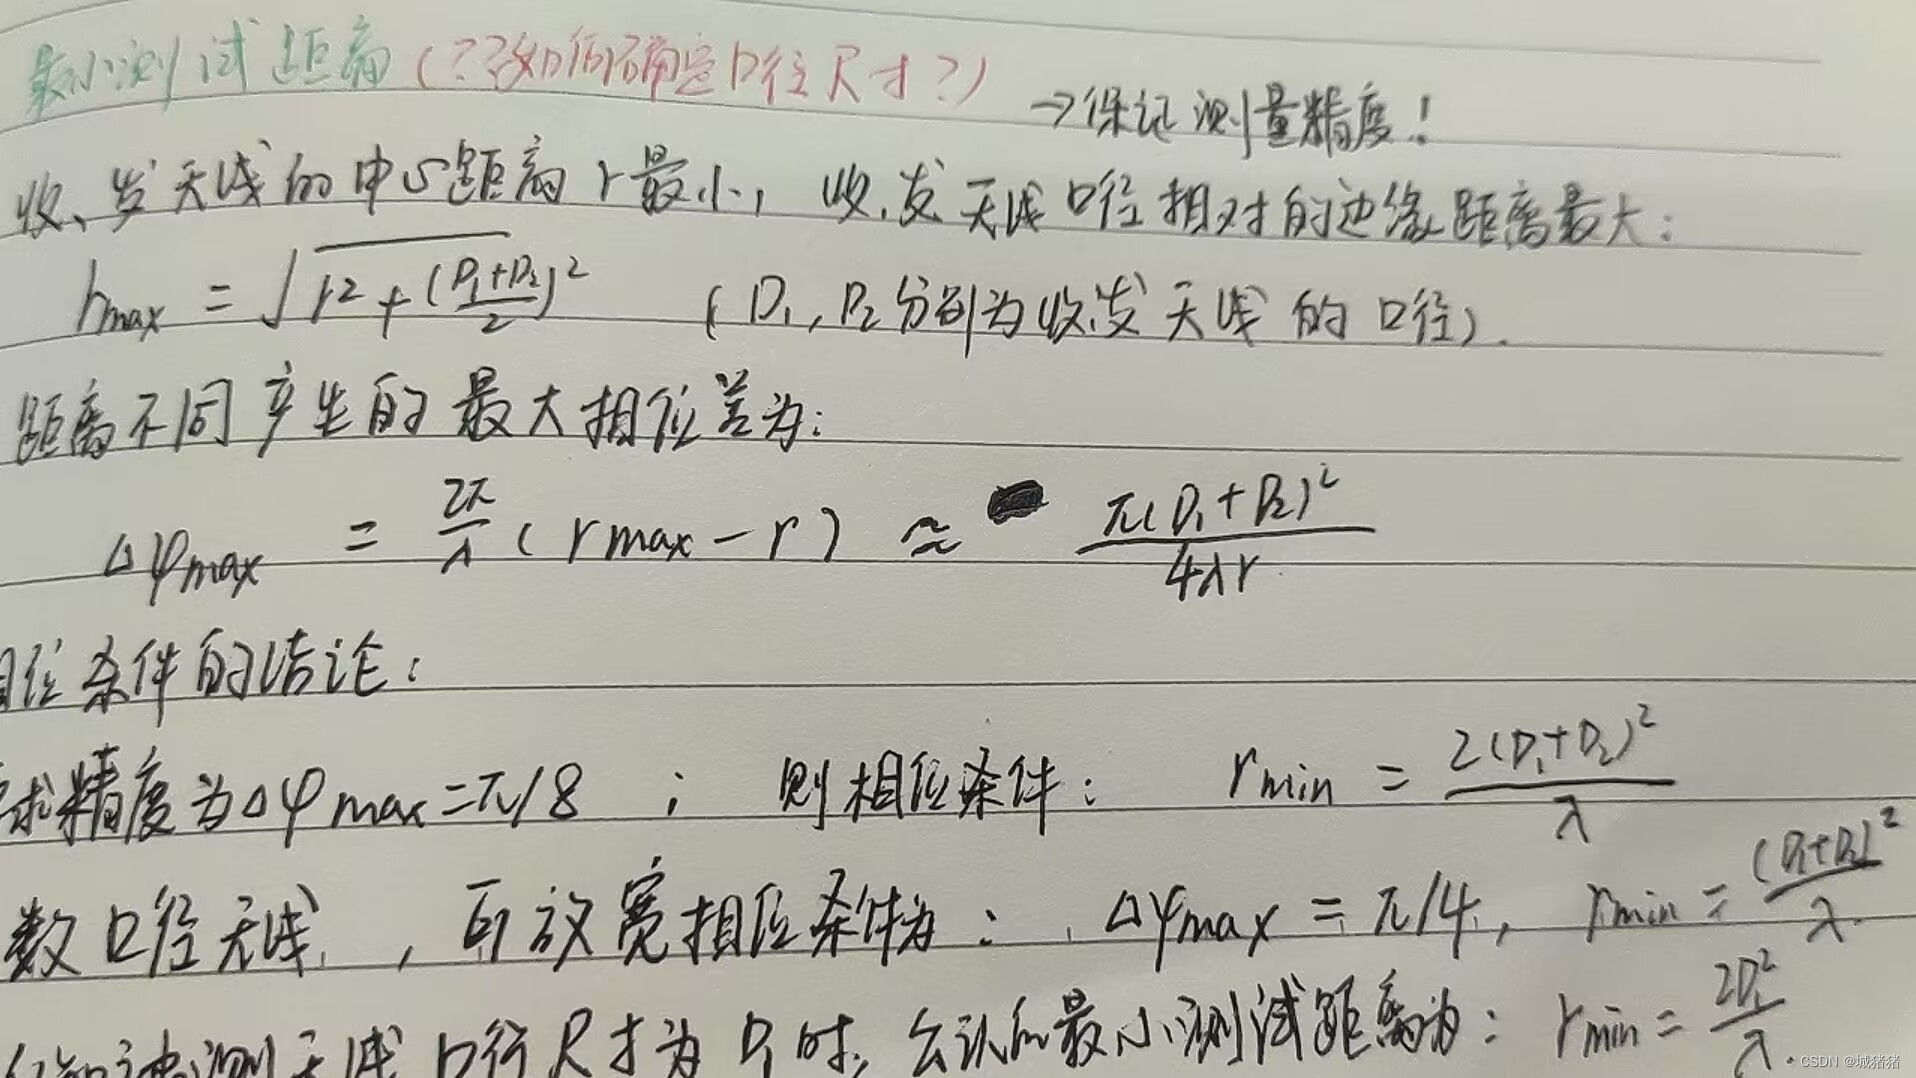 最小测试距离（??如何确定口径尺寸?）
→保证测量精度!
收、发天线的中心距离r最小, 收、发天线口径相对的边缘距离最大:
rmax = √(r² + ((D₁+D₂)/2)²) (D₁, D₂分别为收、发天线的口径).
距离不同产生的最大相位差为:
Δφmax = 2π/λ (rmax - r) ≈ π(D₁+D₂)²/4λr
相位条件的结论:
求精度为Δφmax=π/8 ; 则相位条件: rmin = 2(D₁+D₂)²/λ
数口径天线, 可放宽相位条件为: Δφmax = π/4, rmin = (D₁+D₂)²/λ.
被测天线口径尺寸为D₁时, 公认的最小测试距离为: rmin = 2D₁²/λ.
CSDN @城猪猪